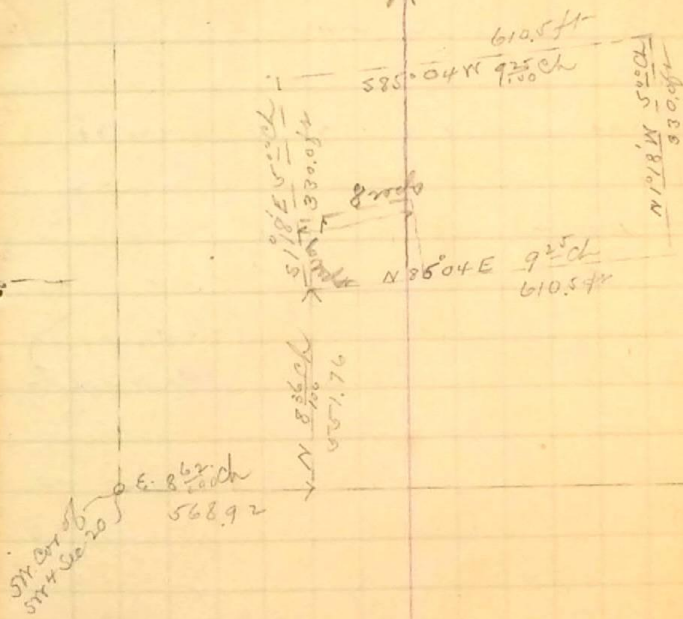 610.5 ft
S85°04W 9 25/100 Ch
N1°18'W 5 00 Ch
330.0 ft
S1°18'E 5 00 Ch
330.0 ft
8 rods
N 85°04 E 9 25 Ch
610.5 ft
N 8 36/100 Ch
551.76
E. 8 62/100 Ch
568.92
SW Cor of
SW 4 Sec 20